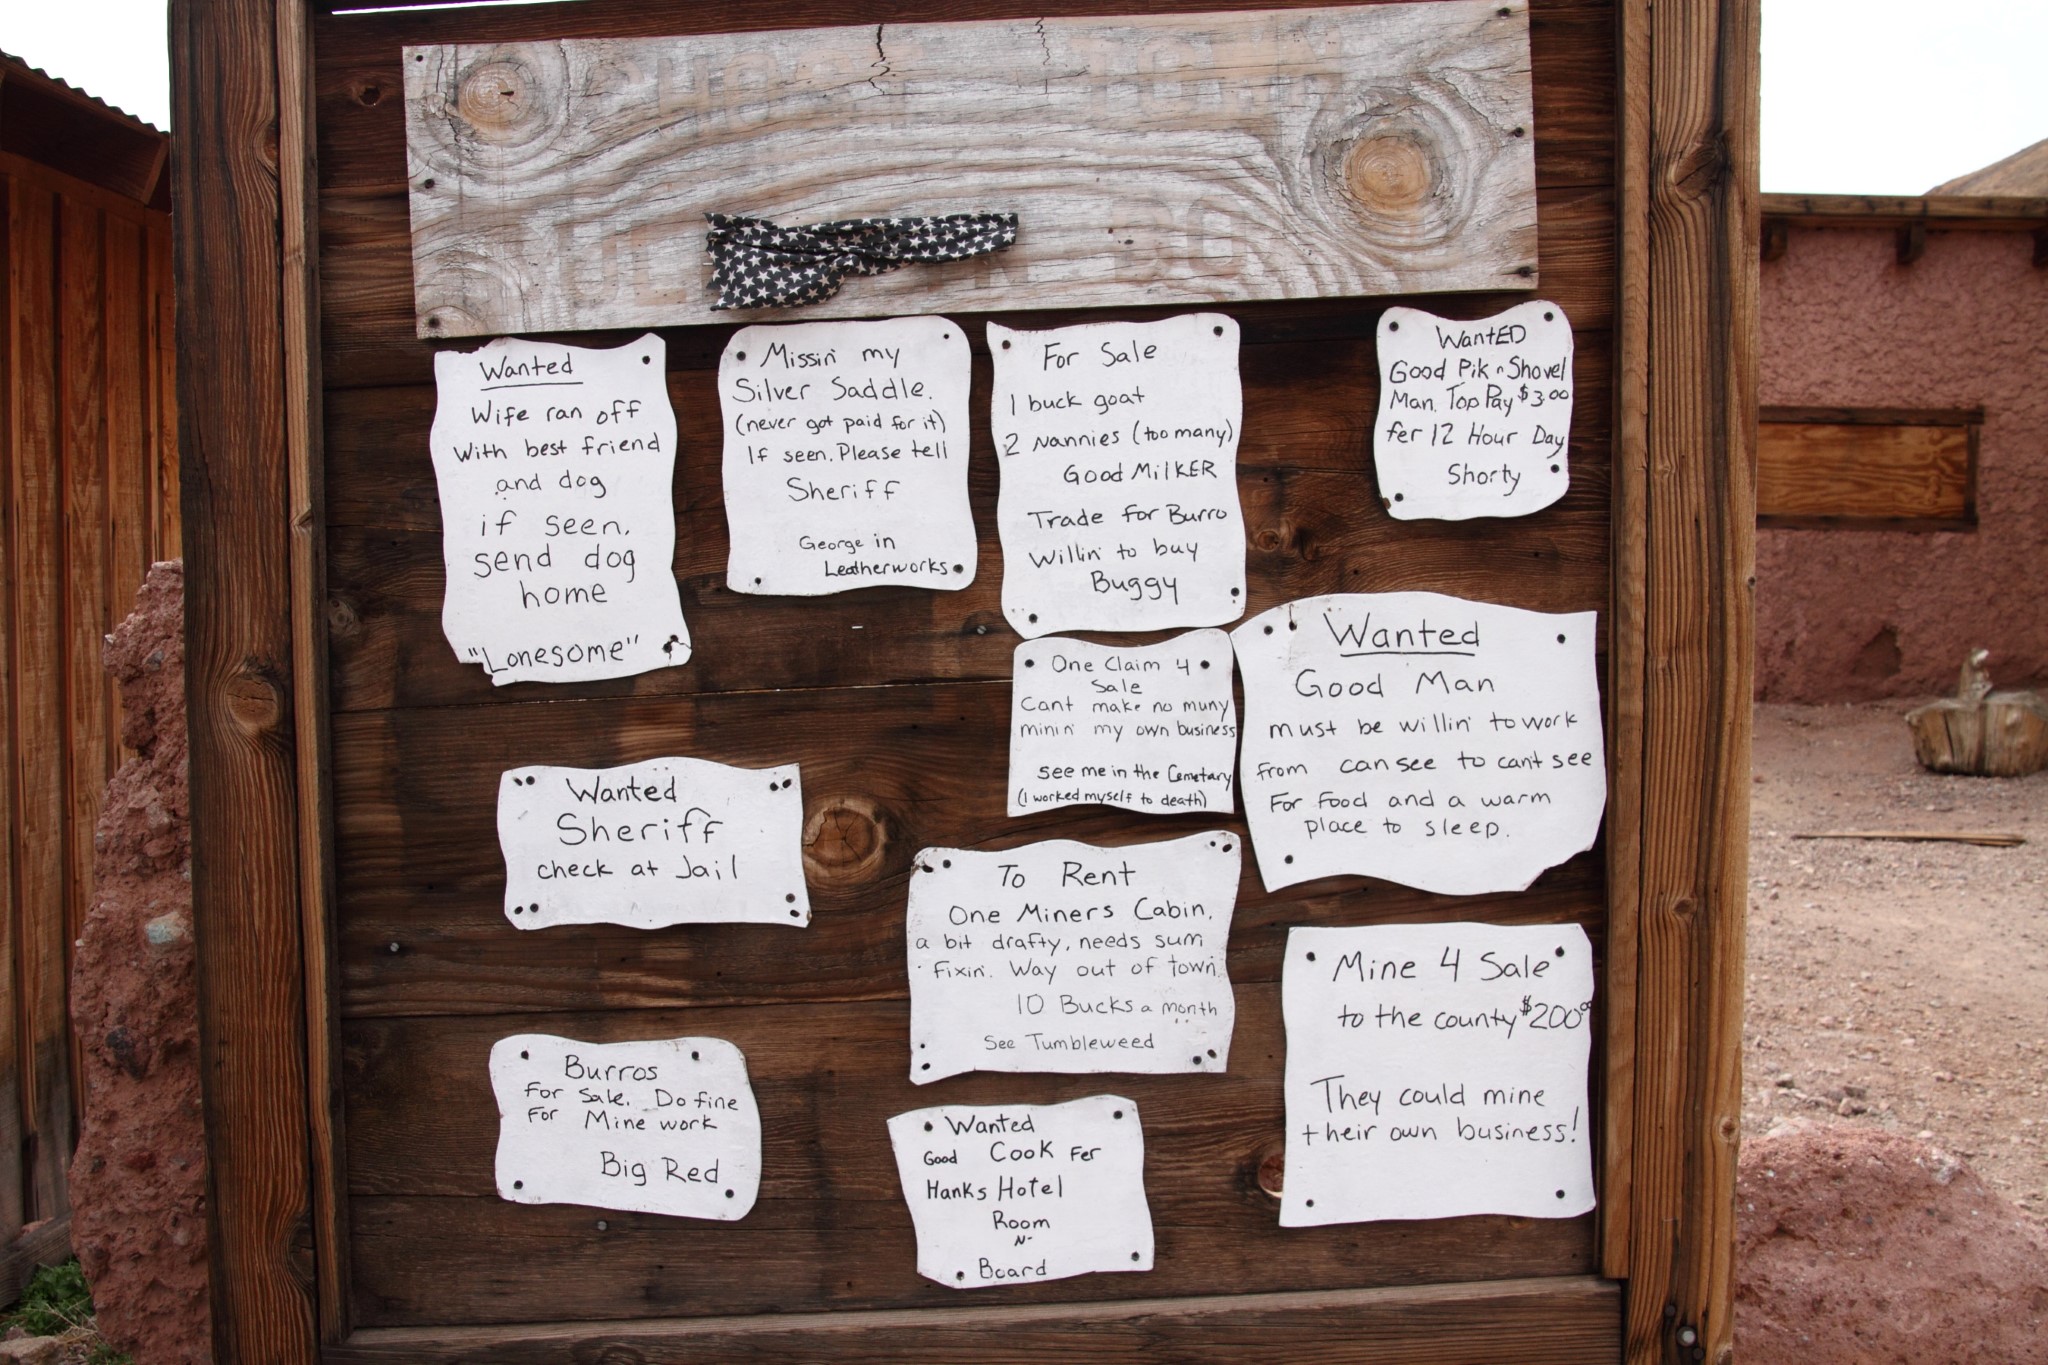 Wanted
Wife ran off
With best friend
and dog
if seen.
send dog
home
"Lonesome"
Missin' my
Silver Saddle.
(never got paid for it)
If seen. Please tell
Sheriff
George in
Leatherworks
For Sale
1 buck goat
2 Nannies (too many)
Good MilKER
Trade for Burro
Willin' to buy
Buggy
WantED
Good Pik n Shovel
Man. Top Pay $3.00
fer 12 Hour Day
Shorty
One Claim 4
Sale
Cant make no muny
minin' my own business
See me in the Cemetary
(I worked myself to death)
Wanted
Good Man
must be willin' to work
from can see to cant see
For Food and a warm
place to sleep.
Wanted
Sheriff
check at Jail
To Rent
One Miners Cabin.
a bit drafty, needs sum
fixin'. Way out of town.
10 Bucks a month
See Tumbleweed
Mine 4 Sale
to the county $200.00
They could mine
their own business!
Burros
For Sale. Do fine
For Mine work
Big Red
Wanted
Good Cook Fer
Hanks Hotel
Room
N-
Board